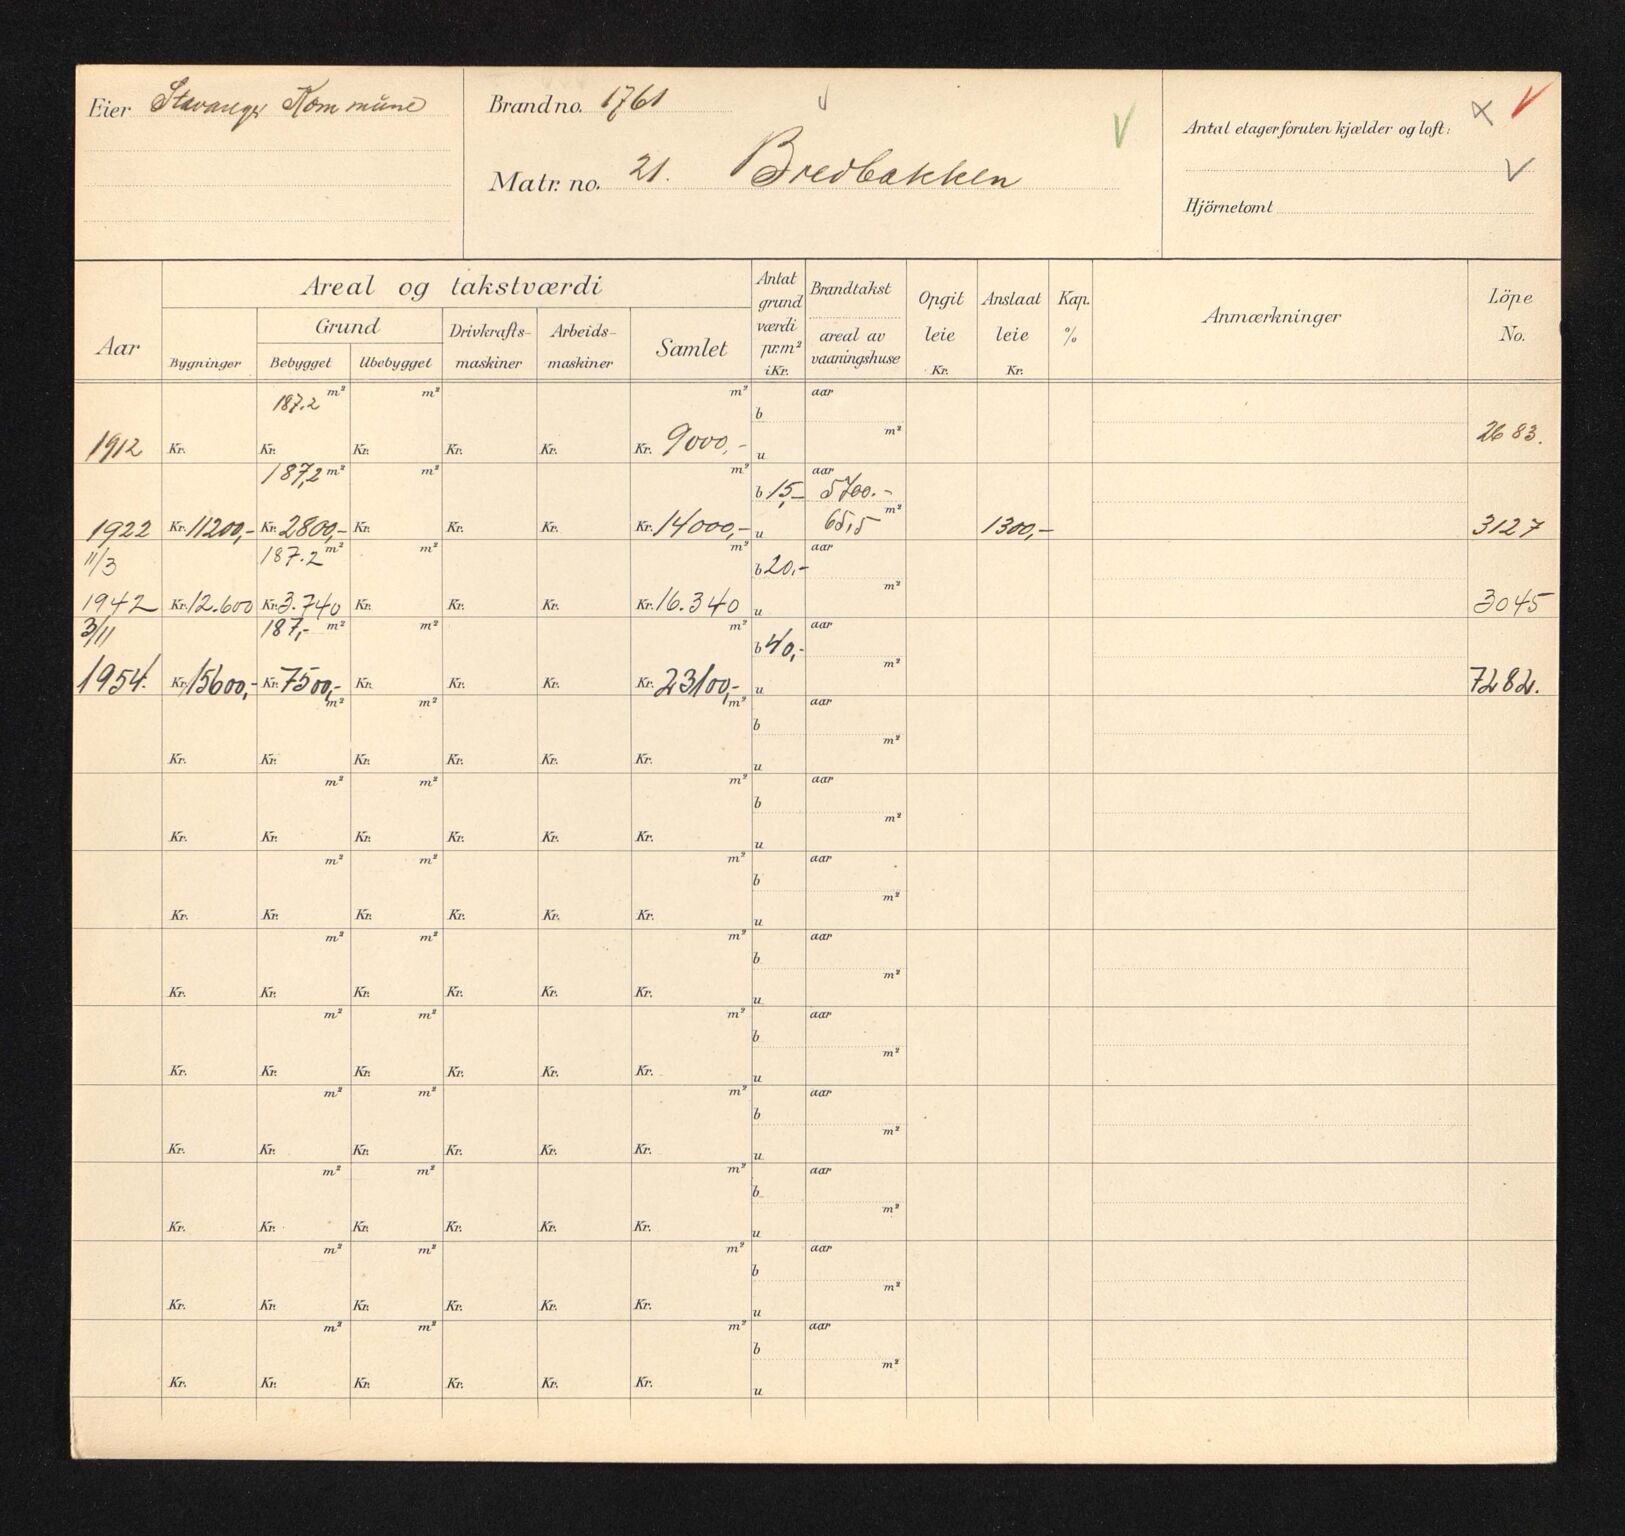 Eier Stavanger Kommune
Brand no. 1761
Matr. no. 21. Bredbakken
Antal etager foruten kjælder og loft:
Hjörnetomt
Aar
Areal og takstværdi
Bygninger
Grund
Bebygget
Ubebygget
Drivkrafts-
maskiner
Arbeids-
maskiner
Samlet
Antat
grund
værdi
pr.m²
i Kr.
Brandtakst
areal av
vaaningshuse
Opgit
leie
Kr.
Anslaat
leie
Kr.
Kap.
%
Anmærkninger
Löpe
No.
187.2 m² m² m² b aar
m²
1912 Kr. Kr. Kr. Kr. Kr. Kr. 9000,- u 2683.
187,2 m² m² m² b 15,- aar 5700.-
1922 Kr. 11200,- Kr. 2800,- Kr. Kr. Kr. Kr. 14000,- u 65,5 m² 1300,- 3127
11/3 187.2 m² m² m² b 20,- aar
m²
1942 Kr. 12.600 Kr. 3.740 Kr. Kr. Kr. Kr. 16.340 u 3045
3/11 187,- m² m² m² b 40,- aar
m²
1954. Kr. 15600,- Kr. 7500,- Kr. Kr. Kr. Kr. 23100,- u 7282.
m² m² m² b aar
m²
Kr. Kr. Kr. Kr. Kr. Kr. u
m² m² m² b aar
m²
Kr. Kr. Kr. Kr. Kr. Kr. u
m² m² m² b aar
m²
Kr. Kr. Kr. Kr. Kr. Kr. u
m² m² m² b aar
m²
Kr. Kr. Kr. Kr. Kr. Kr. u
m² m² m² b aar
m²
Kr. Kr. Kr. Kr. Kr. Kr. u
m² m² m² b aar
m²
Kr. Kr. Kr. Kr. Kr. Kr. u
m² m² m² b aar
m²
Kr. Kr. Kr. Kr. Kr. Kr. u
m² m² m² b aar
m²
Kr. Kr. Kr. Kr. Kr. Kr. u
m² m² m² b aar
m²
Kr. Kr. Kr. Kr. Kr. Kr. u